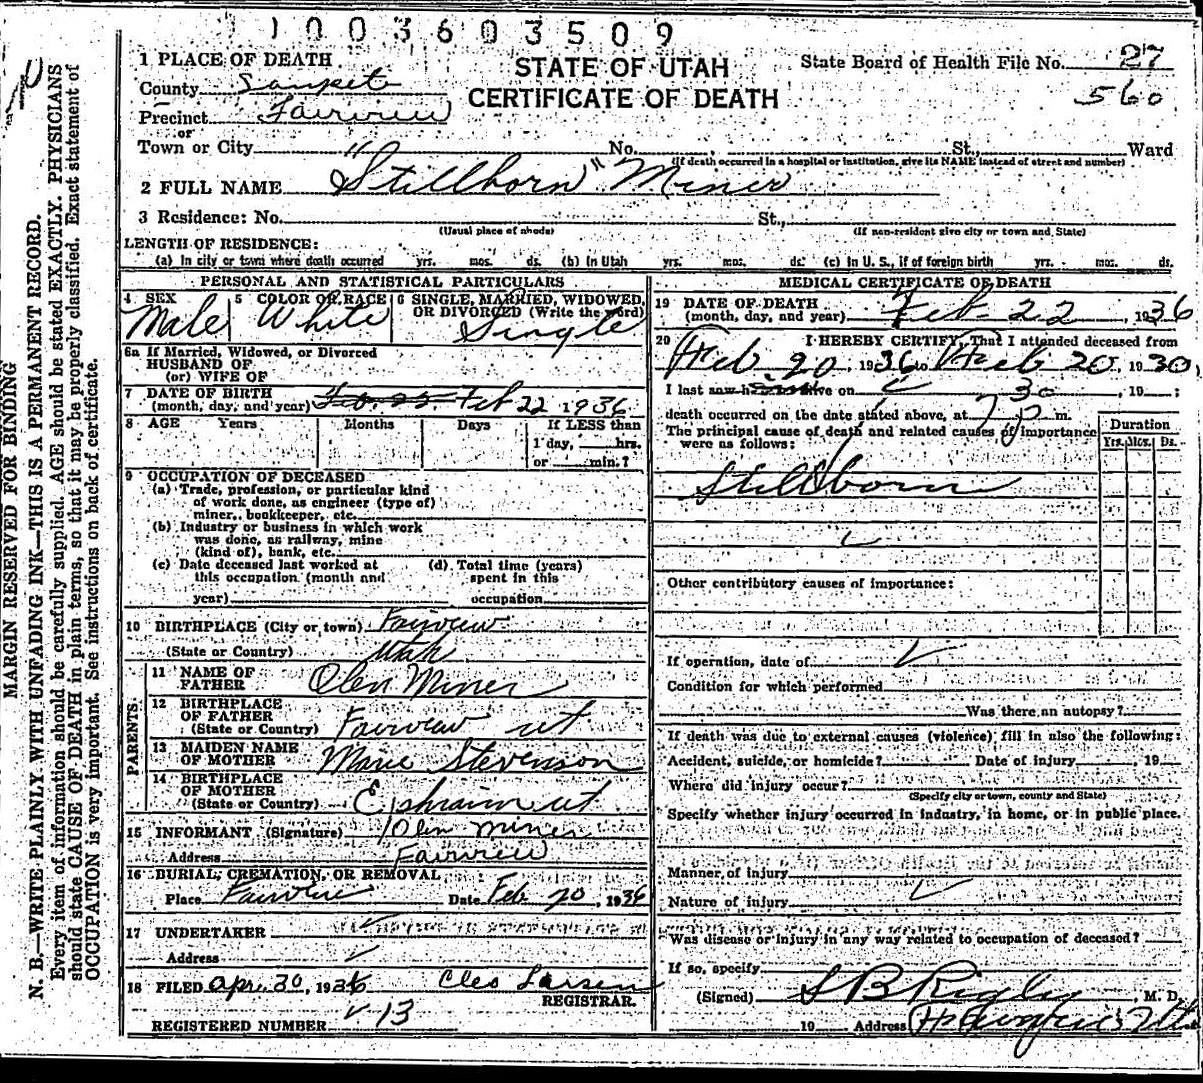 1003603509
1 PLACE OF DEATH
STATE OF UTAH
CERTIFICATE OF DEATH
State Board of Health File No. 27
560
County Sanpete
Precinct Fairview
or
Town or City " No. St., Ward
(If death occurred in a hospital or institution, give its NAME instead of street and number)
2 FULL NAME Stillborn " Miner
3 Residence: No. St.,
(Usual place of abode) (If non-resident give city or town and State)
LENGTH OF RESIDENCE:
(a) In city or town where death occurred yrs. mos. ds. (b) In Utah yrs. mos. ds. (c) In U. S., if of foreign birth yrs. mos. ds.
PERSONAL AND STATISTICAL PARTICULARS
4 SEX 5 COLOR OR RACE 6 SINGLE, MARRIED, WIDOWED,
OR DIVORCED (Write the word)
Male White Single
6a If Married, Widowed, or Divorced
HUSBAND OF
(or) WIFE OF
7 DATE OF BIRTH
(month, day, and year) Feb 22 1936
8 AGE Years Months Days If LESS than
1 day, hrs.
or min.?
9 OCCUPATION OF DECEASED
(a) Trade, profession, or particular kind
of work done, as engineer (type of)
miner, bookkeeper, etc.
(b) Industry or business in which work
was done, as railway, mine
(kind of), bank, etc.
(c) Date deceased last worked at (d) Total time (years)
this occupation (month and spent in this
year) occupation
10 BIRTHPLACE (City or town) Fairview
(State or Country) Utah
PARENTS
11 NAME OF
FATHER Olen Miner
12 BIRTHPLACE
OF FATHER
(State or Country) Fairview ut
13 MAIDEN NAME
OF MOTHER Marie Stevenson
14 BIRTHPLACE
OF MOTHER
(State or Country) Ephraim ut
15 INFORMANT (Signature) Olen Miner
Address Fairview
16 BURIAL, CREMATION, OR REMOVAL
Place Fairview Date Feb 20, 1936
17 UNDERTAKER
Address
18 FILED Apr. 30, 1936 Cleo Larsen
REGISTRAR.
REGISTERED NUMBER 13
MEDICAL CERTIFICATE OF DEATH
19 DATE OF DEATH
(month, day, and year) Feb 22, 1936
20 I HEREBY CERTIFY, That I attended deceased from
Feb 20 1936 to Feb 20, 1930,
I last saw h alive on , 19 ;
death occurred on the date stated above, at 7 30 p m.
The principal cause of death and related causes of importance
were as follows:
Duration
Yrs. Mos. Ds.
Stillborn
Other contributory causes of importance:
If operation, date of
Condition for which performed
Was there an autopsy?
If death was due to external causes (violence) fill in also the following:
Accident, suicide, or homicide? Date of injury , 19
Where did injury occur?
(Specify city or town, county and State)
Specify whether injury occurred in industry, in home, or in public place.
Manner of injury
Nature of injury
Was disease or injury in any way related to occupation of deceased?
If so, specify
(Signed) S B Rigby, M. D.
19 Address
MARGIN RESERVED FOR BINDING
N. B.—WRITE PLAINLY WITH UNFADING INK—THIS IS A PERMANENT RECORD.
Every item of information should be carefully supplied. AGE should be stated EXACTLY. PHYSICIANS
should state CAUSE OF DEATH in plain terms, so that it may be properly classified. Exact statement of
OCCUPATION is very important. See instructions on back of certificate.